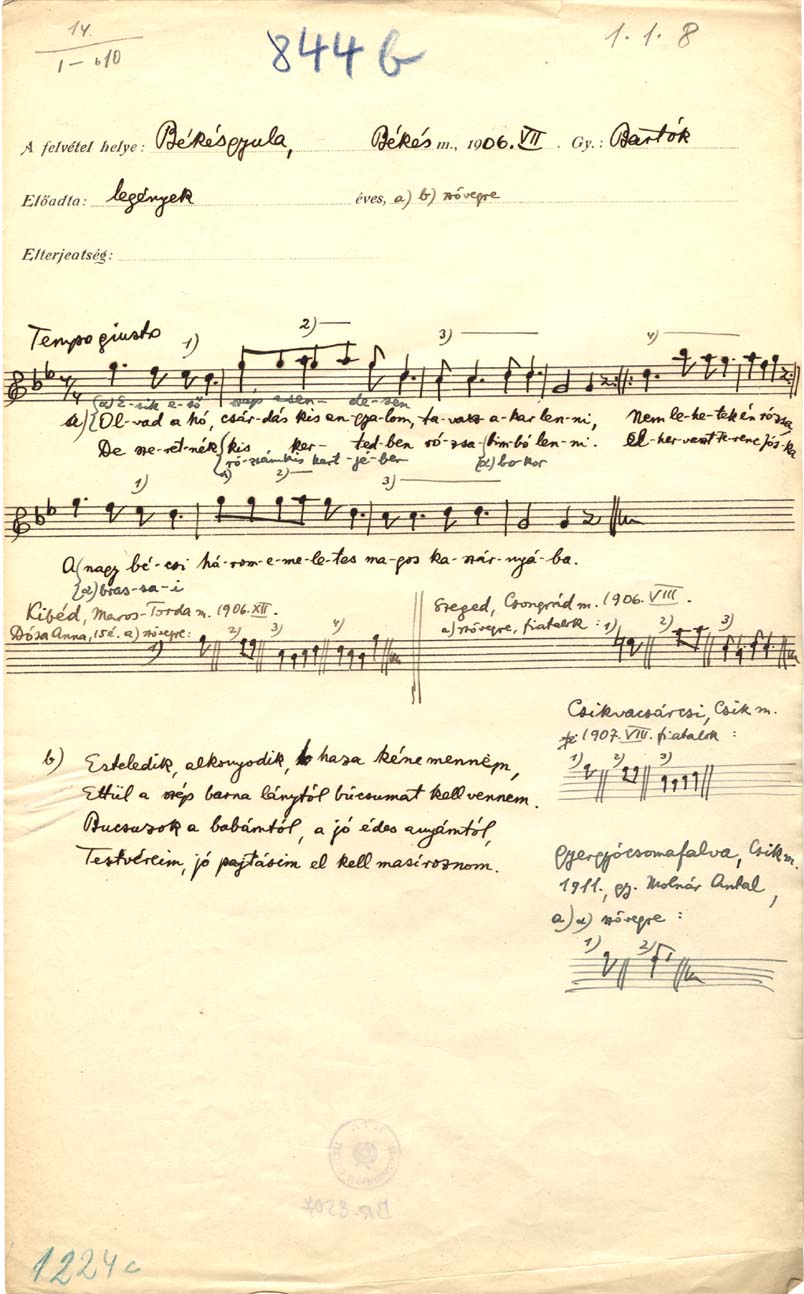 14.
1 – 610
844 b
1. 1. 8
A felvétel helye: Békésgyula, Békés m., 1906. VII. Gy.: Bartók
Előadta: legények éves, a) b) szövegre
Elterjeatség:
Tempo giusto
1) 2) 3) 4)
α) E-sik e-ső szép csen- de-sen
a) Ol-vad a hó, csár-dás kis an-gya-lom, ta-vasz a-kar len-ni, Nem le-he-tek én rózsa,
De sze-ret-nék kis ker- ted-ben ró-zsa- bim-bó len-ni. el-her-vaszt Fe-renc Jós-ka
ró-zsám kis kert-jé-ben α) bo-kor
1) 2) 3)
A nagy bé-csi há-rom-e-me-le-tes ma-gos ka-szár-nyá-ba.
α) bras-sa-i
Kibéd, Maros-Torda m. 1906. XII.
Dósa Anna, 15 é. a) szövegre:
1) 2) 3) 4)
Szeged, Csongrád m. 1906. VIII.
a) szövegre, fiatalok: 1) 2) 3)
Csikvacsárcsi, Csik m.
1907. VIII. fiatalok:
1) 2) 3)
b) Esteledik, alkonyodik, haza kéne mennem,
Ettül a szép barna lánytól búcsumat kell vennem.
Bucsuzok a babámtól, a jó édes anyámtól,
Testvéreim, jó pajtásim el kell masíroznom.
Gyergyócsomafalva, Csik m.
1911., gy. Molnár Antal,
a) α) szövegre:
1) 2)
1224 c